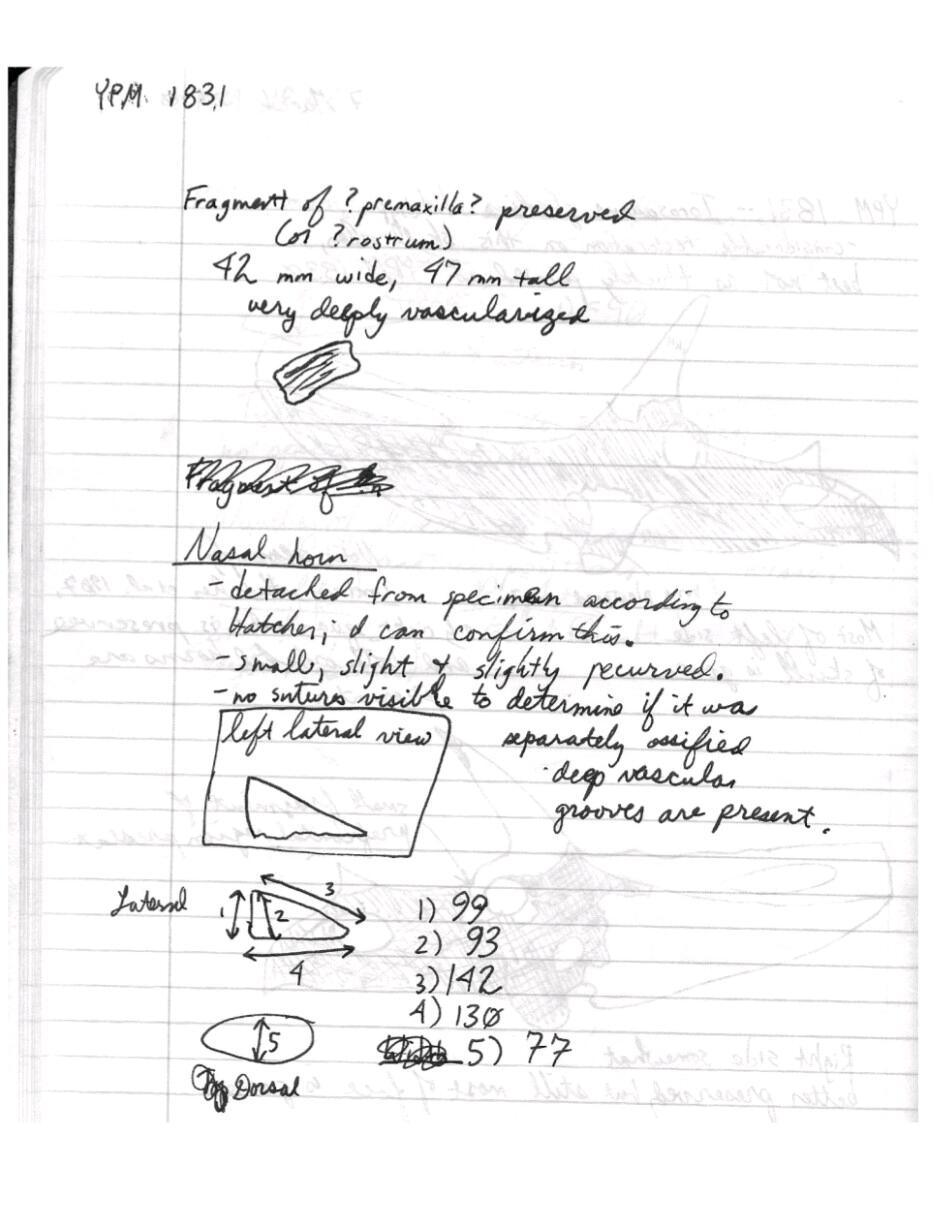 YPM 1831
Fragment of ?premaxilla? preserved
(or ?rostrum)
42 mm wide, 47 mm tall
very deeply vascularized
Fragment of
Nasal horn
- detached from specimen according to
Hatcher; I can confirm this.
- small, slight & slightly recurved.
- no sutures visible to determine if it was
separately ossified
left lateral view
· deep vascular
grooves are present.
Lateral
1 2 3
4
1) 99
2) 93
3) 142
4) 130
5
5) 77
Dorsal